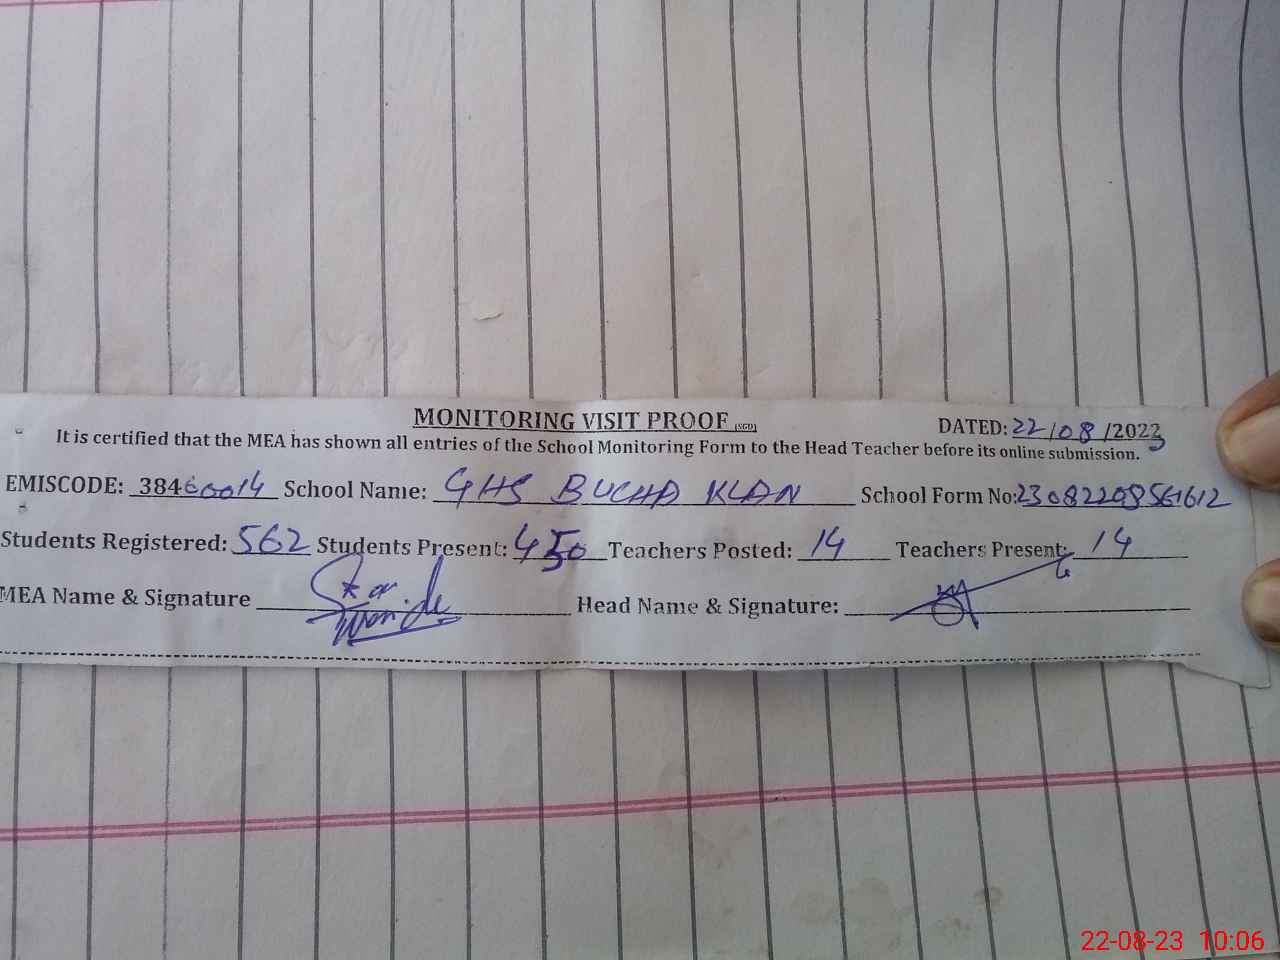 MONITORING VISIT PROOF (SGD) DATED: 22/08/2023
It is certified that the MEA has shown all entries of the School Monitoring Form to the Head Teacher before its online submission.
EMISCODE: 38460014 School Name: GHS BUCHA KLAN School Form No:
Students Registered: 562 Students Present: 450 Teachers Posted: 14 Teachers Present: 14
MEA Name & Signature Head Name & Signature:
22-08-23 10:06